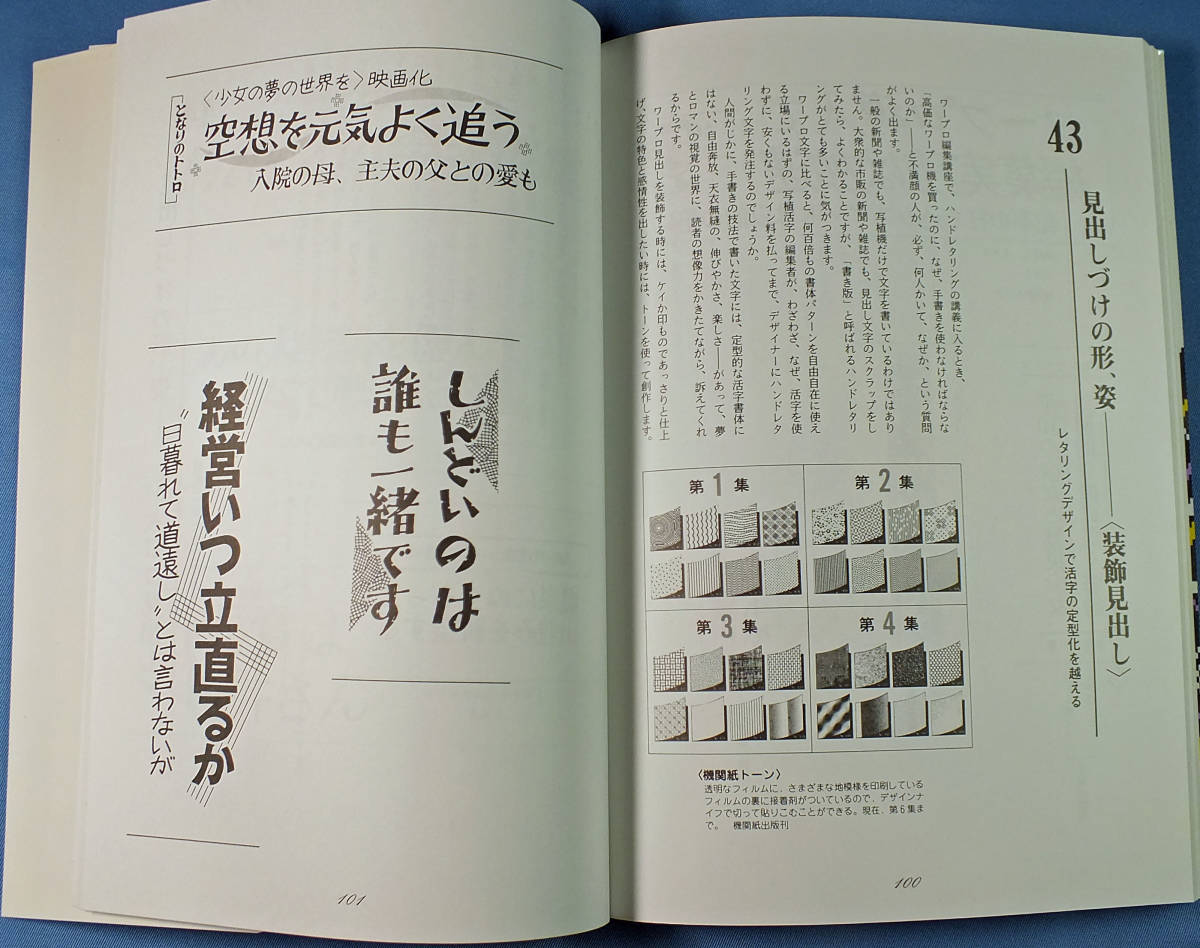 43
見出しづけの形、姿――〈装飾見出し〉
レタリングデザインで活字の定型化を越える
ワープロ編集講座で、ハンドレタリングの講義に入るとき、
「高価なワープロ機を買ったのに、なぜ、手書きを使わなければならな
いのか」――と不満顔の人が、必ず、何人かいて、なぜか、という質問
がよく出ます。
一般の新聞や雑誌でも、写植機だけで文字を書いているわけではあり
ません。大衆的な市販の新聞や雑誌でも、見出し文字のスクラップをし
てみたら、よくわかることですが、「書き版」と呼ばれるハンドレタリ
ングがとても多いことに気がつきます。
ワープロ文字に比べると、何百倍もの書体パターンを自由自在に使え
る立場にいるはずの、写植活字の編集者が、わざわざ、なぜ、活字を使
わずに、安くもないデザイン料を払ってまで、デザイナーにハンドレタ
リング文字を発注するのでしょうか。
人間がじかに、手書きの技法で書いた文字には、定型的な活字書体に
はない、自由奔放、天衣無縫の、伸びやかさ、楽しさ――があって、夢
とロマンの視覚の世界に、読者の想像力をかきたてながら、訴えてくれ
るからです。
ワープロ見出しを装飾する時には、ケイか印ものであっさりと仕上
げ、文字の特色と感情性を出したい時には、トーンを使って創作します。
第1集
第2集
第3集
第4集
〈機関紙トーン〉
透明なフィルムに、さまざまな地模様を印刷している
フィルムの裏に接着剤がついているので、デザインナ
イフで切って貼りこむことができる。現在、第6集ま
で。 機関紙出版刊
100
〈少女の夢の世界を〉映画化
空想を元気よく追う
入院の母、主夫の父との愛も
となりのトトロ
しんどいのは
誰も一緒です
経営いつ立直るか
“日暮れて道遠し”とは言わないが
101